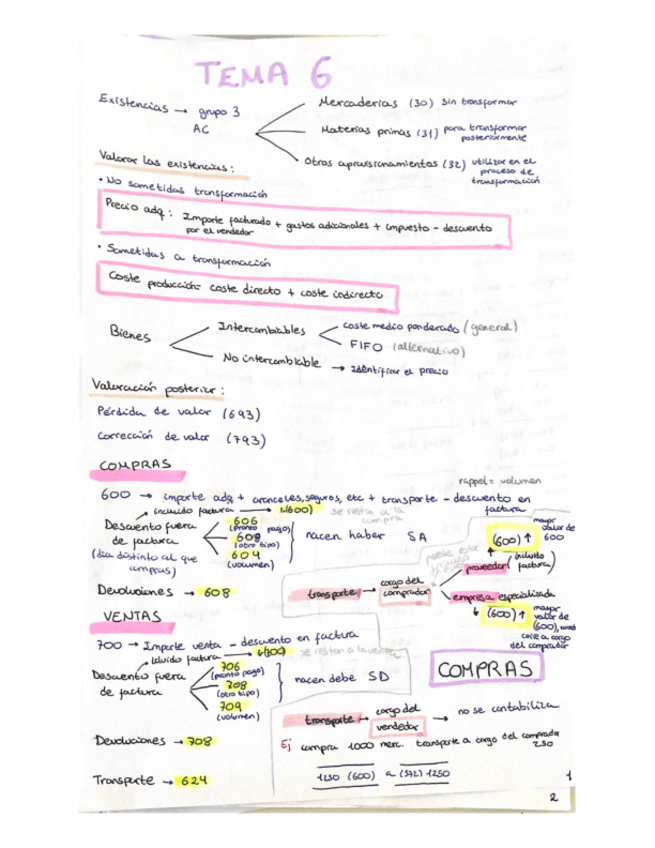 TEMA 6
Existencias → grupo 3
AC
Mercaderías (30) sin transformar
Materias primas (31) para transformar
posteriormente
Otros aprovisionamientos (32) utilizar en el
proceso de
transformación
Valorar las existencias:
• No sometidas transformación
Precio adq: Importe facturado + gastos adicionales + impuesto - descuento
por el vendedor
• Sometidas a transformación
Coste producción= coste directo + coste indirecto
Bienes
Intercambiables
coste medio ponderado (general)
FIFO (alternativo)
No intercambiable → identificar el precio
Valoración posterior:
Pérdida de valor (693)
Corrección de valor (793)
COMPRAS
rappel = volumen
600 → importe adq + aranceles, seguros, etc + transporte - descuento en
factura
incluido factura → ↓(600) se restan a la
compra
Descuento fuera
de factura
(día distinto al que
compras)
606
(pronto pago)
608
(otro tipo)
604
(volumen)
nacen haber SA
Devoluciones → 608
transporte → cargo del
comprador
proveedor (incluido
factura)
(600) ↑
mayor
valor de
600
empresa especializada
↓ (600) ↑ mayor
valor de
(600),
corre a cargo
del comprador
VENTAS
700 → Importe venta - descuento en factura
incluido factura → ↓(700) se restan a la venta
Descuento fuera
de factura
706
(pronto pago)
708
(otro tipo)
709
(volumen)
nacen debe SD
COMPRAS
transporte → cargo del
vendedor
→ no se contabiliza
Devoluciones → 708
Ej compra 1000 merc. transporte a cargo del comprada
250
1250 (600) a (572) 1250
Transporte → 624
1
2